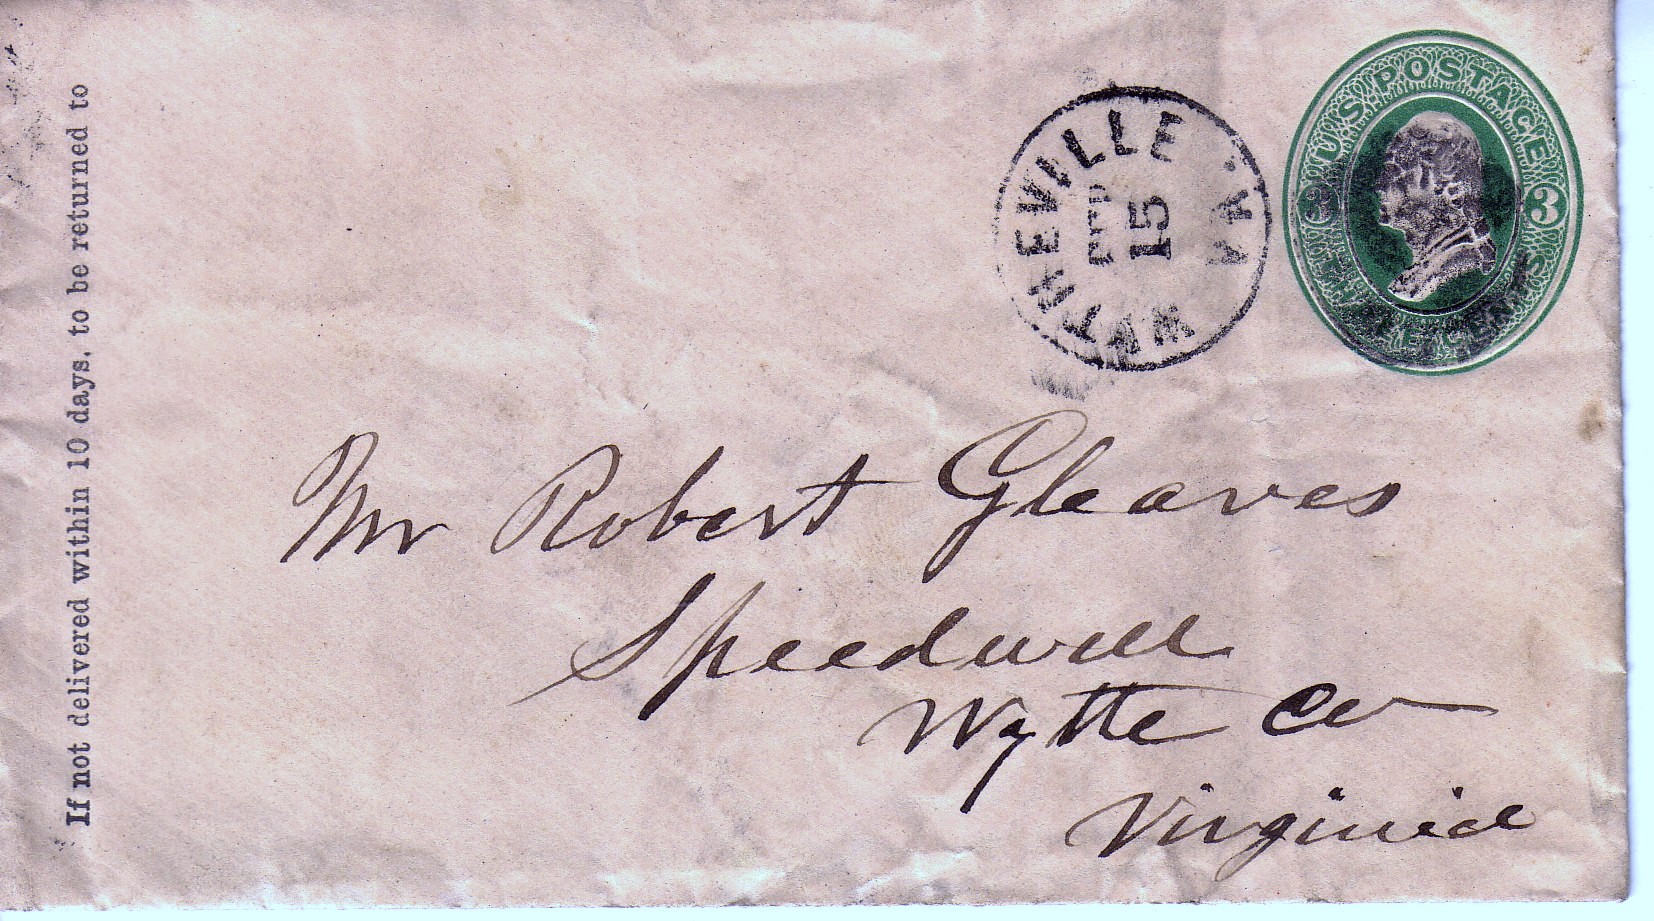 If not delivered within 10 days, to be returned to
WYTHEVILLE VA.
15
U.S. POSTAGE
3 3
Mr Robert Gleaves
Speedwell
Wythe Co
Virginia